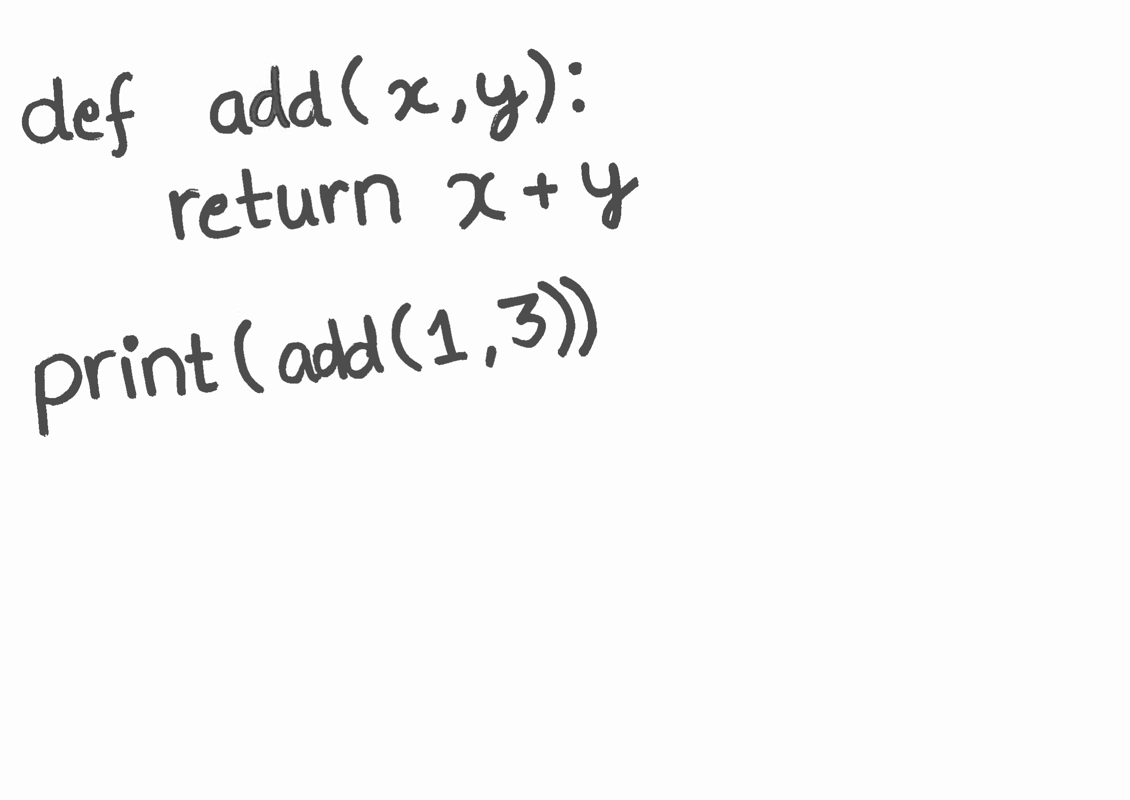 def add(x,y):
    return x + y
print(add(1,3))